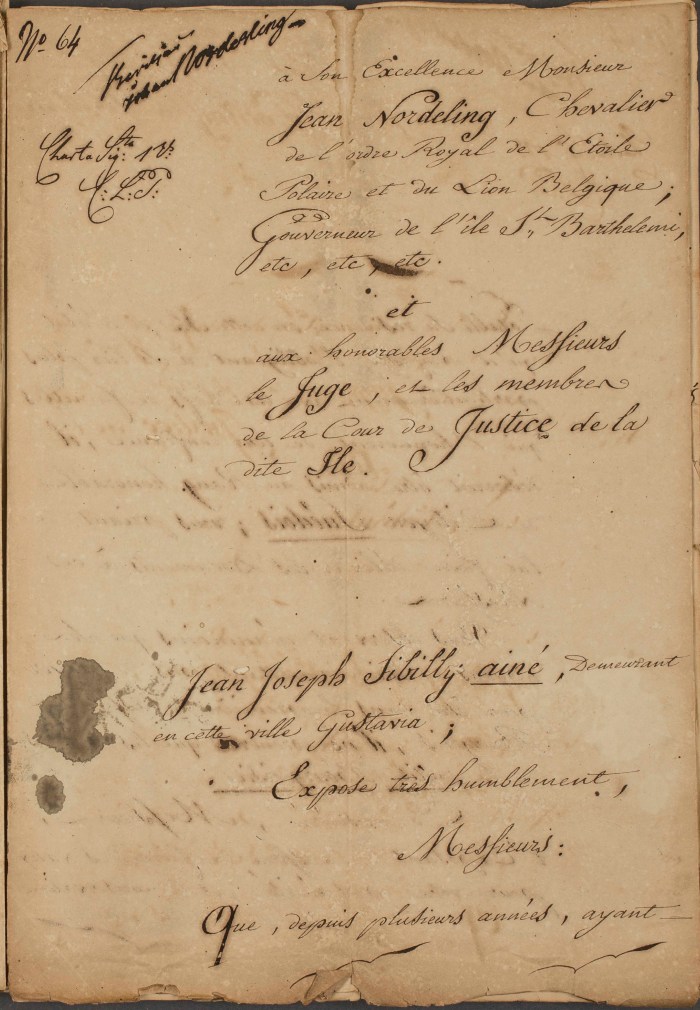 No 64
Johan Norderling
Charta Sig: ta 13:
C: L: T:
à Son Excellence Monsieur
Jean Nordeling, Chevalier
de l'ordre Royal de l'Etoile
Polaire et du Lion Belgique;
Gouverneur de l'île St. Barthelemi,
etc, etc, etc.
et
aux honorables Messieurs
le Juge, et les membres
de la Cour de Justice de la
dite Ile.
Jean Joseph Sibilly ainé, Demeurant
en cette ville Gustavia;
Expose très humblement,
Messieurs:
Que, depuis plusieurs années, ayant